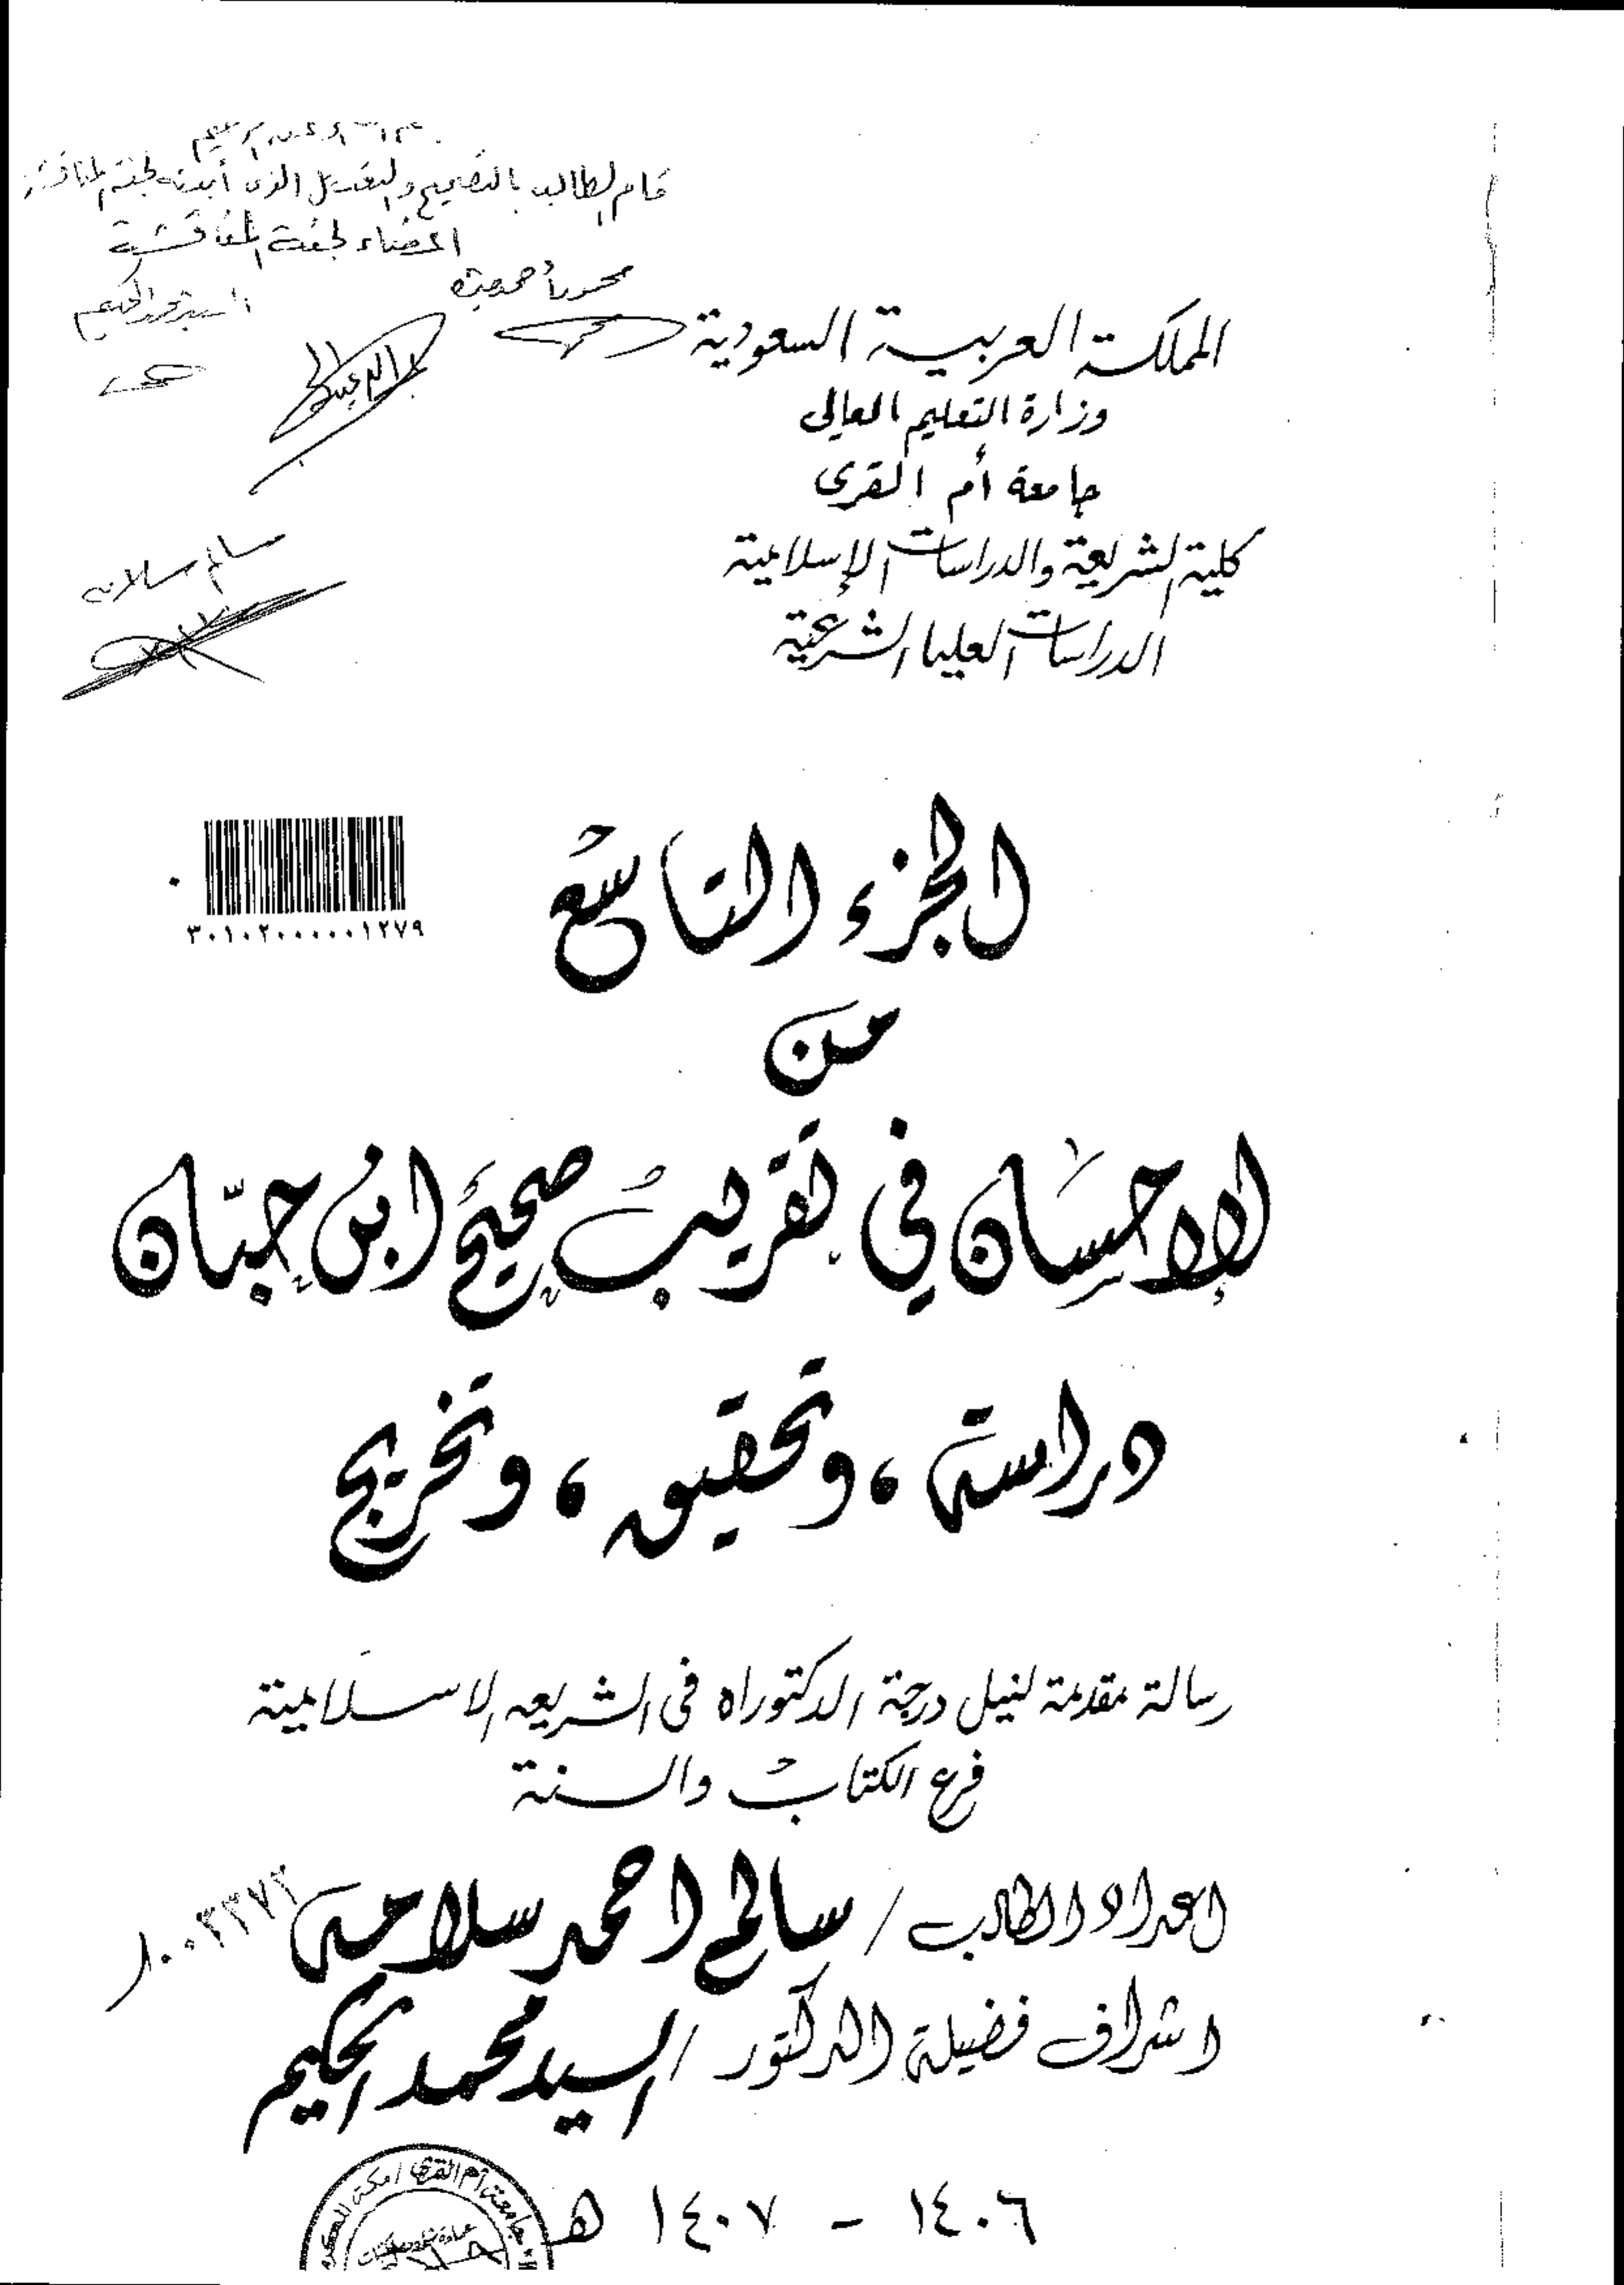 قام الطالب بالتصحيح والتعديل الذي أبدته لجنة المناقشة
أعضاء لجنة المناقشة
السيد محمد الحكيم
المملكة العربية السعودية
وزارة التعليم العالى
جامعة أم القرى
كلية الشريعة والدراسات الإسلامية
سالم سلامه
الدراسات العليا الشرعية
الجزء التاسع
٣٠١٠٢٠٠٠٠٠١٢٧٩
من
الإحسان في تقريب صحيح ابن حبّان
دراسة ، وتحقيق ، وتخريج
رسالة مقدمة لنيل درجة الدكتوراه فى الشريعه الاسلامية
فرع الكتاب والسنة
اعداد الطالب / سالم احمد سلامه
اشراف فضيلة الدكتور / السيد محمد الحكيم
١٤٠٦ - ١٤٠٧ هـ
جامعة أم القرى / مكة